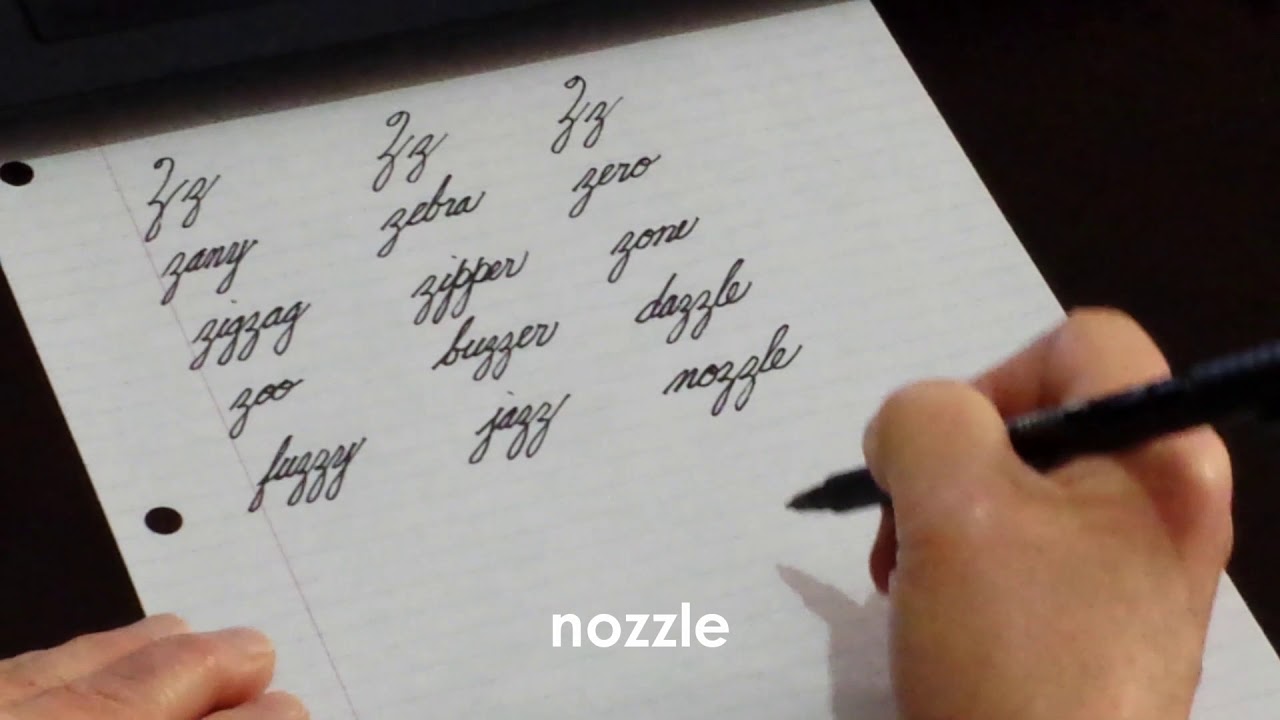 Zz Zz Zz
zany zebra zero
zigzag zipper zone
zoo buzzer dazzle
fuzzy jazz nozzle
nozzle